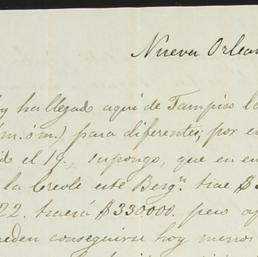 Nueva Orlean
y ha llegado aqui de Tampico la
m. ó m.) para diferentes; por e
el 19, supongo, que en en
la Creole este Berg.n trae $
22. traerá $330000. pero a
eden conseguirse hoy menos